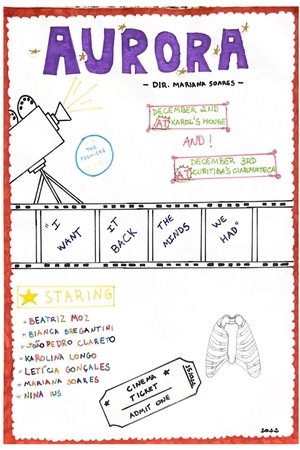 AURORA
- DIR. MARIANA SOARES -
DECEMBER 2ND
AT KAROL'S HOUSE
AND!
DECEMBER 3RD
AT CURITIBA'S CINEMATECA
THE
PREMIERE
"I WANT IT BACK THE MINDS WE HAD"
STARING
BEATRIZ MOZ
BIANCA BREGANTINI
JOÃO PEDRO CLARETO
KAROLINA LONGO
LETÍCIA GONÇALES
MARIANA SOARES
NINA IUS
CINEMA
TICKET
ADMIT ONE
2022